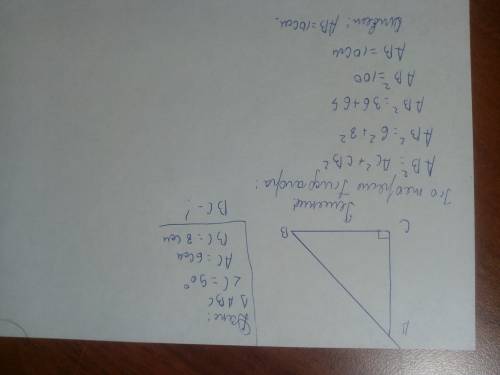 Дано:
Δ ABC
∠C = 90°
AC = 6 см
BC = 8 см
BC - ?
A
C
B
Решение
По теореме Пифагора:
AB² = AC² + CB²
AB² = 6² + 8²
AB² = 36 + 64
AB² = 100
AB = 10 см
Ответ: AB = 10 см.